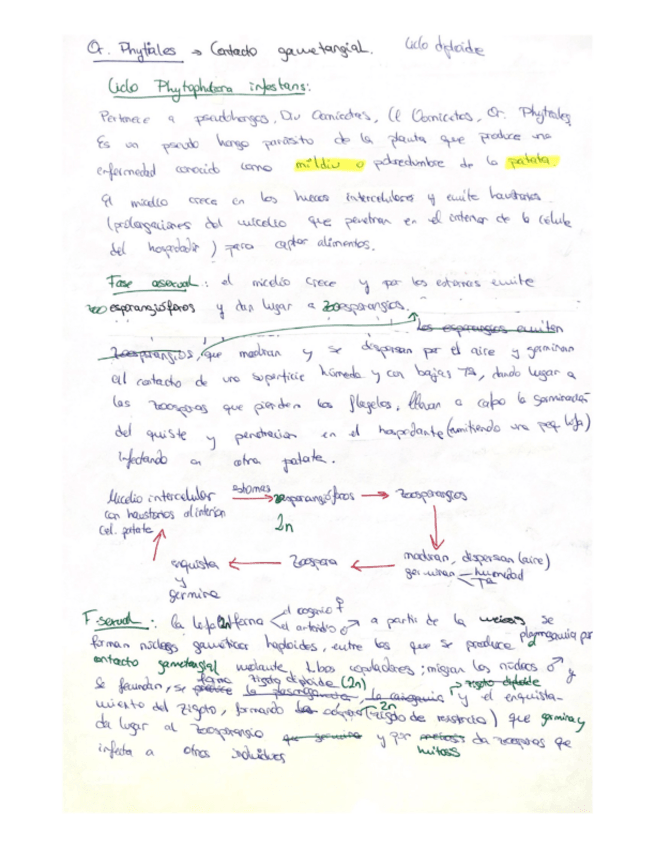 Or. Phytiales → Contacto gametangial. Ciclo diploide
Ciclo Phytophthora infestans:
Pertenece a pseudohongos, Div Oomicetes, Cl Oomicetes, Or. Phytiales
Es un pseudo hongo parásito de la planta que produce una
enfermedad conocida como mildiu o podredumbre de la patata.
El micelio crece en los huecos intercelulares y emite haustorios
(prolongaciones del micelio que penetran en el interior de la célula
del hospedador) para captar alimentos.
Fase asexual: el micelio crece y por los estomas emite
zooesporangióforos y dan lugar a zoosporangios.
los esporangios emiten
zoosporangios, que maduran y se dispersan por el aire y germinan
al contacto de una superficie húmeda y con bajas Tª, dando lugar a
las zoosporas que pierden los flagelos, llevan a cabo la germinación
del quiste y penetración en el hospedante (emitiendo una peq. hifa)
infectando en otra patata.
Micelio intercelular estomas → zooesporangióforos → Zoosporangios
con haustorios al interior 2n
cel. patata
enquista ← Zoospora ← maduran, dispersan (aire)
y germinan humedad
germina Tª
F. sexual: la hifa 2n forma el oogonio ♀
el anteridio ♂ a partir de la meiosis se
forman núcleos gaméticos haploides, entre los que se produce plasmogamia por
contacto gametangial mediante tubos copuladores; migran los núcleos ♂ y
se fecundan, se forma zigoto diploide (2n) y el enquista-
miento del zigoto, formando oospora 2n (zigoto de resistencia) que germina y
da lugar al zoosporangio que germina y por meiosis mitosis da zoosporas que
infecta a otros individuos